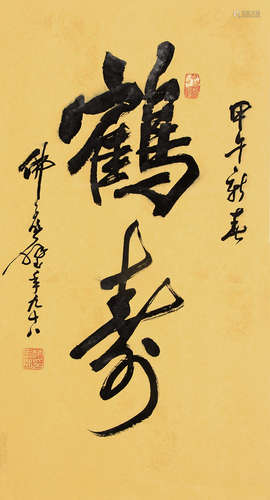 甲午新春
鶴壽
佛庵時年九十八